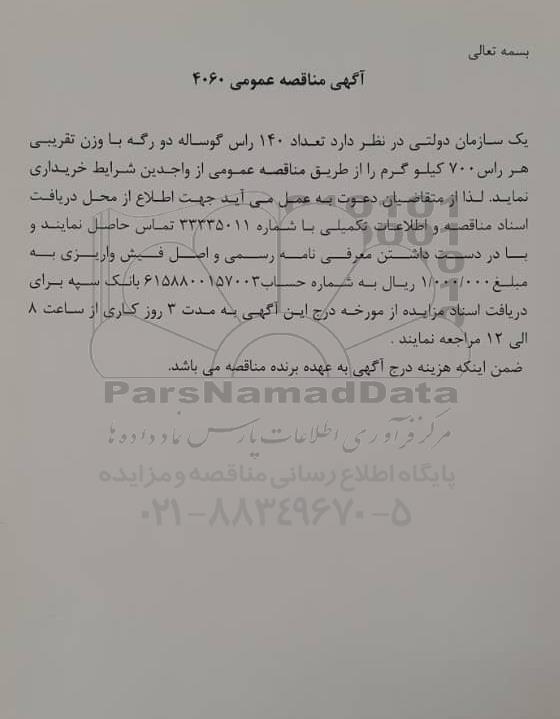 بسمه تعالی
آگهی مناقصه عمومی ۴۰۶۰
یک سازمان دولتی در نظر دارد تعداد ۱۴۰ راس گوساله دو رگه با وزن تقریبی
هر راس ۷۰۰ کیلو گرم را از طریق مناقصه عمومی از واجدین شرایط خریداری
نماید. لذا از متقاضیان دعوت به عمل می آید جهت اطلاع از محل دریافت
اسناد مناقصه و اطلاعات تکمیلی با شماره ۳۳۳۳۵۰۱۱ تماس حاصل نمایند و
با در دست داشتن معرفی نامه رسمی و اصل فیش واریزی به
مبلغ ۱/۰۰۰/۰۰۰ ریال به شماره حساب ۶۱۵۸۸۰۰۱۵۷۰۰۳ بانک سپه برای
دریافت اسناد مزایده از مورخه درج این آگهی به مدت ۳ روز کاری از ساعت ۸
الی ۱۲ مراجعه نمایند .
ضمن اینکه هزینه درج آگهی به عهده برنده مناقصه می باشد.
ParsNamadData
مرکز فرآوری اطلاعات پارس نماد داده ها
پایگاه اطلاع رسانی مناقصه و مزایده
۰۲۱-۸۸۳۴۹۶۷۰-۵